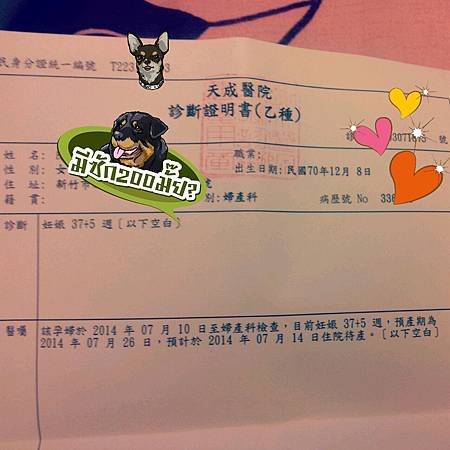 民身分證統一編號 T223
天成醫院
診斷證明書(乙種)
診 307 號
姓 名:
職業:
性 別: 女
出生日期: 民國70年12月 8日
住 址: 新竹市
籍 貫:
別:婦產科
病歷號 No 33
มีซัก200มั้ย?
診斷 妊娠 37+5 週〔以下空白〕
醫囑 該孕婦於 2014 年 07 月 10 日至婦產科檢查,目前妊娠 37+5 週,預產期為
2014 年 07 月 26 日,預計於 2014 年 07 月 14 日住院待產。〔以下空白〕